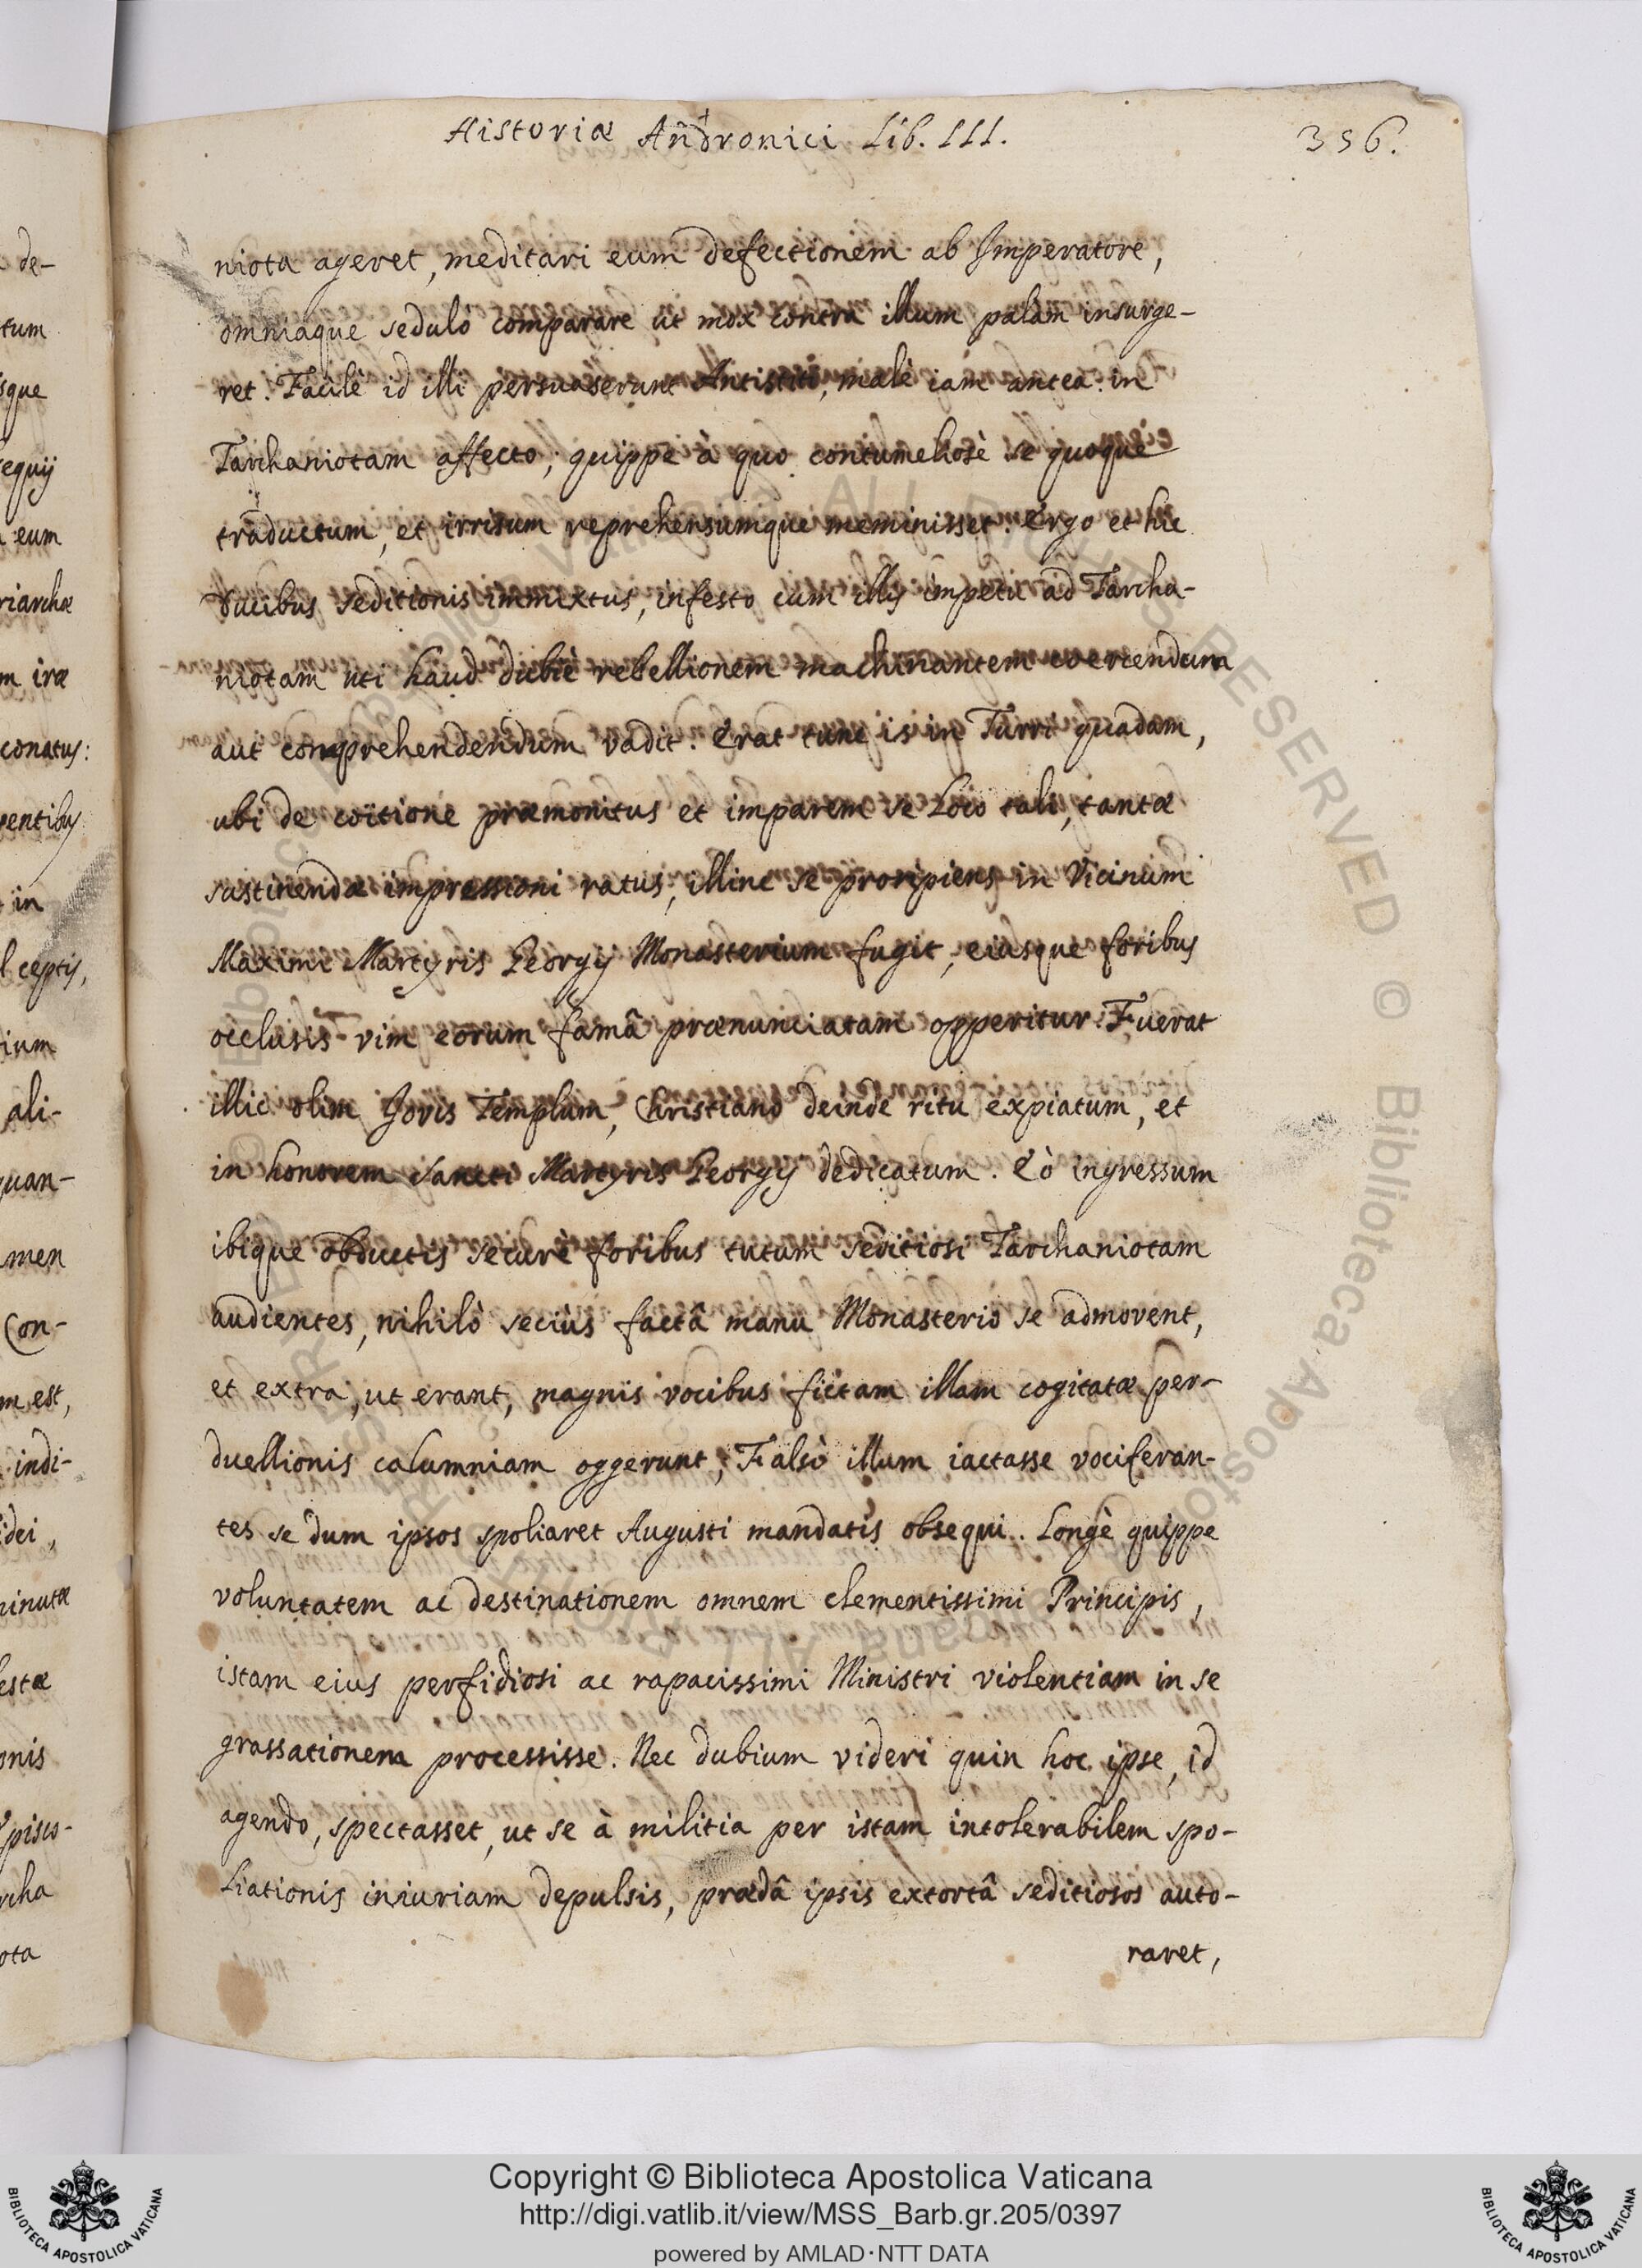 Historiæ Andronici Lib. III.
356.
niota ageret, meditari eum defectionem ab Imperatore,
omniaque sedulò comparare ut mox contra illum palàm insurge-
ret. Facilè id illi persuaserunt Antistiti, malè iam antea in
Tarchaniotam affecto; quippe à quo contumeliosè se quoque
traductum, et irrisum reprehensumque meminisset. Ergo et hic
ducibus seditionis immixtus, infesto cum illis impetu ad Tarcha-
niotam uti haud dubiè rebellionem machinantem coercendum
aut comprehendendum vadit. Erat tunc is in Turri quadam,
ubi de coitione præmonitus et imparem se loco tali, tantæ
sustinendæ impressioni ratus, illinc se proripiens in vicinum
Maximi Martyris Georgij Monasterium fugit, eiusque foribus
occlusis vim eorum famâ prænunciatam opperitur. Fuerat
illic olim Jovis Templum, Christiano deinde ritu expiatum, et
in honorem Sancti Martyris Georgij dedicatum. Eò ingressum
ibique obductis securè foribus tutum seditiosi Tarchaniotam
audientes, nihilò seciùs factâ manu Monasterio se admovent,
et extra, ut erant, magnis vocibus fictam illam cogitatæ per-
duellionis calumniam oggerunt; Falsò illum iactasse vociferan-
tes se dum ipsos spoliaret Augusti mandatis obsequi. Longè quippe
voluntatem ac destinationem omnem clementissimi Principis,
istam eius perfidiosi ac rapacissimi Ministri violentiam in se
grassationem processisse. Nec dubium videri quin hoc ipse, id
agendo, spectasset, ut se à militia per istam intolerabilem spo-
liationis iniuriam depulsis, prædâ ipsis extortâ seditiosos auto-
raret,
de-
tum
sque
equij
eum
riarchæ
m iræ
conatus:
rentibus
in
l ceptis,
ium
ali-
quan-
men
Con-
m est,
indi-
idei,
inutæ
estæ
onis
Episco-
rcha
ota
Copyright © Biblioteca Apostolica Vaticana
http://digi.vatlib.it/view/MSS_Barb.gr.205/0397
powered by AMLAD·NTT DATA
BIBLIOTECA APOSTOLICA VATICANA
BIBLIOTECA APOSTOLICA VATICANA